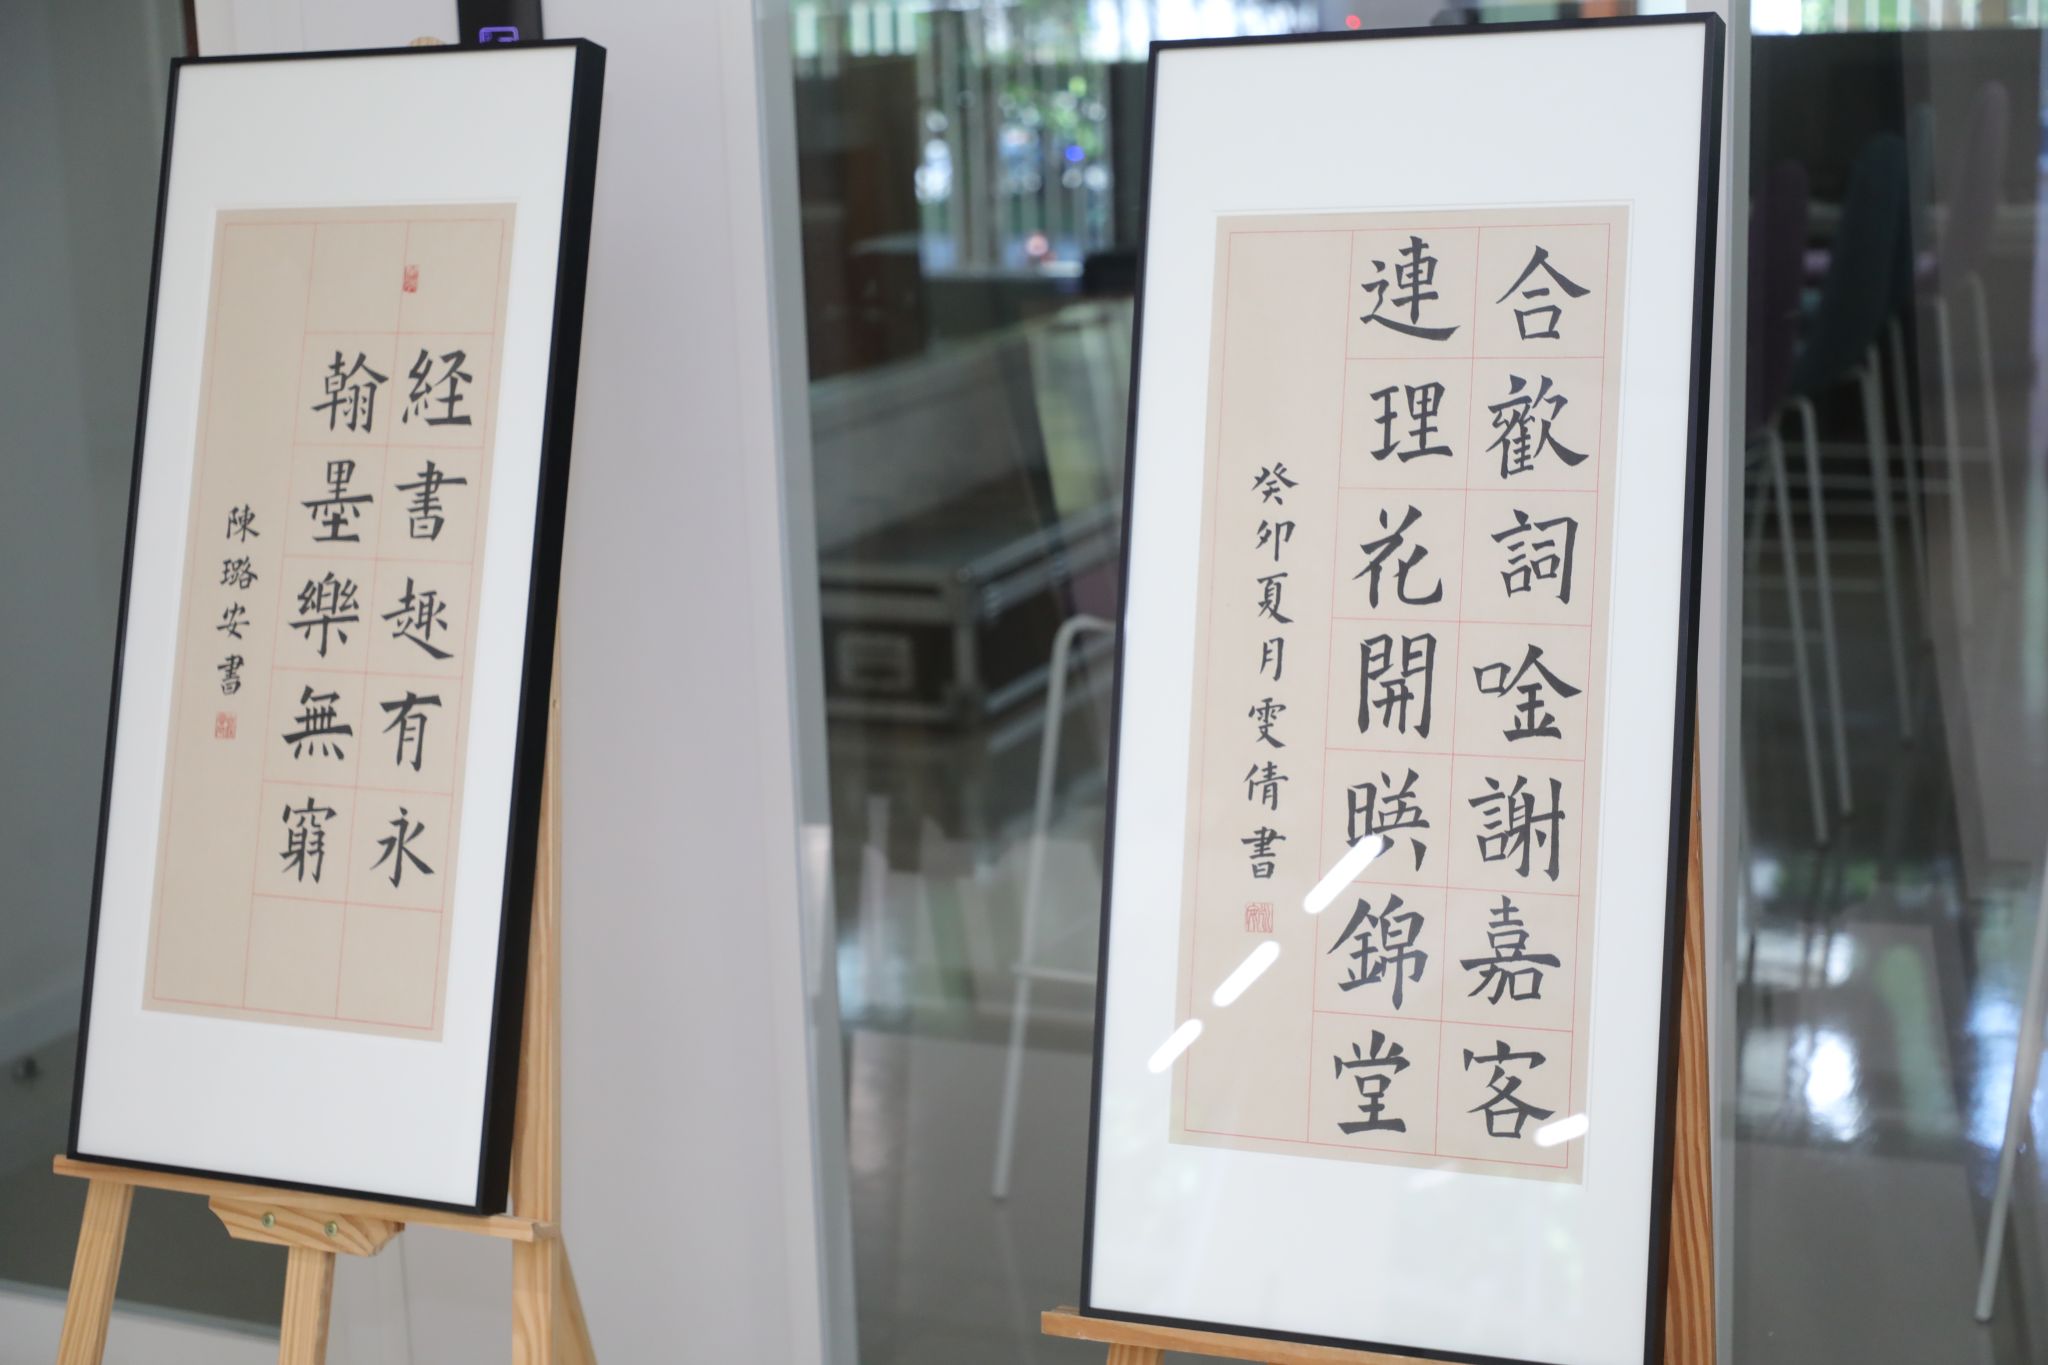 経書趣有永
翰墨樂無窮
陳璐安書
合歡詞唫謝嘉客
連理花開暎錦堂
癸卯夏月雯倩書